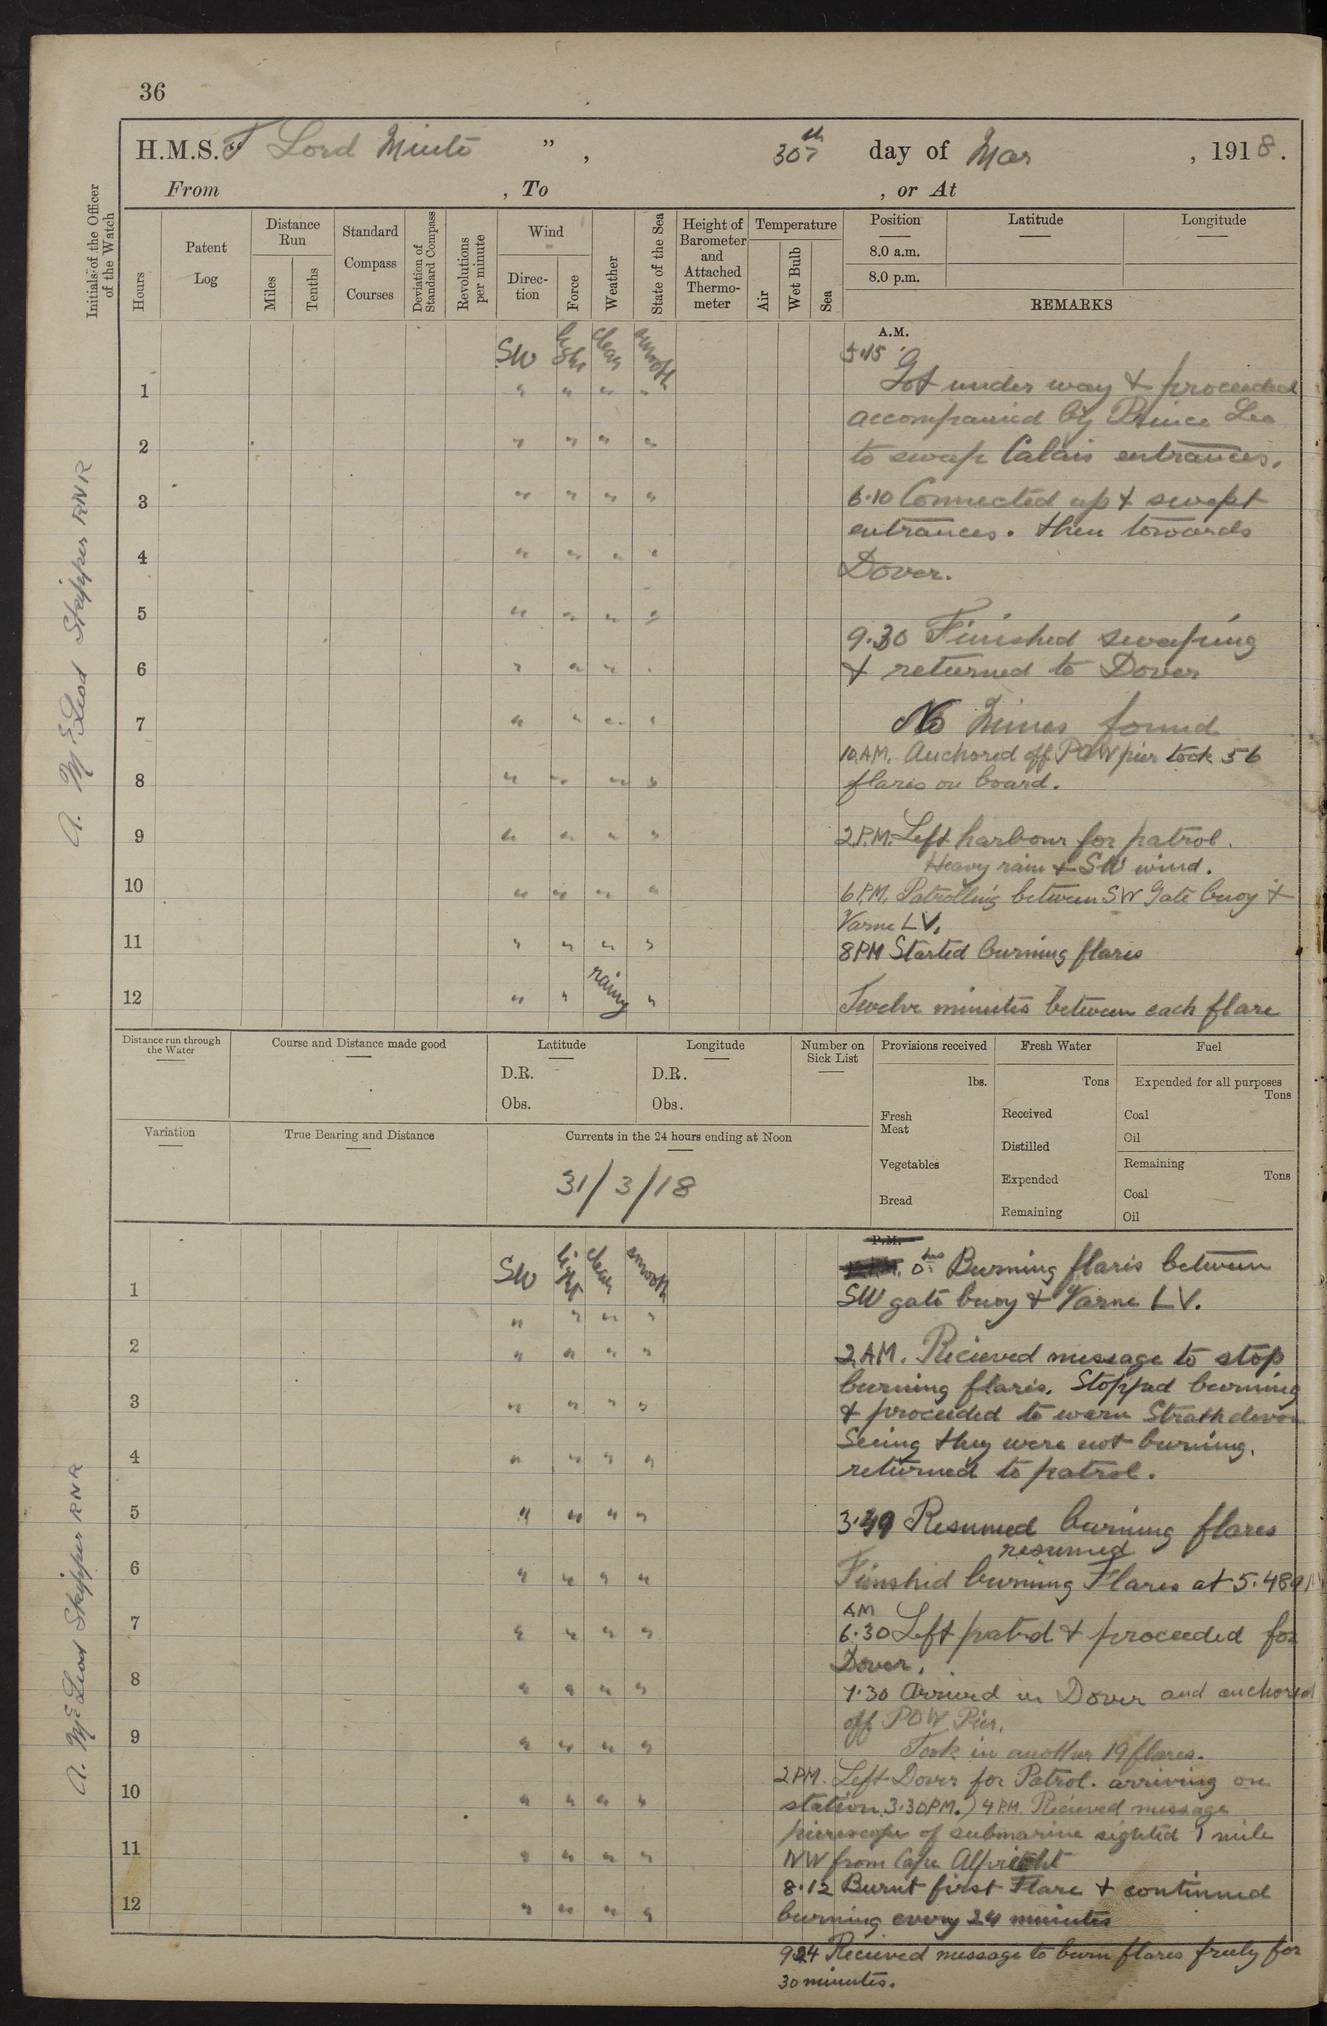 36
H.M.S. T Lord Minto " , 30th day of Mar , 1918.
From , To , or At
Initials of the Officer of the Watch
Hours
Patent Log
Distance Run
Miles
Tenths
Standard Compass Courses
Deviation of Standard Compass
Revolutions per minute
Wind
Direction
Force
Weather
State of the Sea
Height of Barometer and Attached Thermometer
Temperature
Air
Wet Bulb
Sea
Position
Latitude
Longitude
8.0 a.m.
8.0 p.m.
REMARKS
A.M.
SW light clear smooth
5.45
1 " " " " Got under way & proceeded
accompanied by Prince Leo
2 " " " " to sweap Calais entrances.
3 " " " " 6.10 Connected up & swept
entrances. then towards
4 " " " " Dover.
5 " " " "
9.30 Finished sweaping
6 " " " " & returned to Dover
7 " " " " No Mines found
10.AM. Anchored off POW pier took 56
8 " " " " flares on board.
9 " " " " 2.P.M. Left harbour for patrol.
Heavy rain & SW wind.
10 " " " " 6 P.M. Patrolling between SW Gate buoy &
Varne LV.
11 " " " " 8PM Started burning flares
12 " " rainy " Twelve minutes between each flare
A. McLeod Skipper RNR
Distance run through the Water
Course and Distance made good
Latitude
D.R.
Obs.
Longitude
D.R.
Obs.
Number on Sick List
Provisions received
lbs.
Fresh Meat
Vegetables
Bread
Fresh Water
Tons
Received
Distilled
Expended
Remaining
Fuel
Expended for all purposes
Tons
Coal
Oil
Remaining
Tons
Coal
Oil
Variation
True Bearing and Distance
Currents in the 24 hours ending at Noon
31/3/18
P.M.
SW light clear smooth 0 hrs Burning flaris between
1 " " " " SW gate buoy & Varne LV.
2 " " " " 2.AM. Recieved message to stop
burning flaris. Stopped burning
3 " " " " & proceeded to warn Strathdevon
Seeing they were not burning.
4 " " " " returned to patrol.
5 " " " " 3.49 Resumed burning flares
resumed
6 " " " " Finshid burning Flares at 5.48
AM
7 " " " " 6.30 Left patrol & proceeded for
Dover.
8 " " " " 7.30 Arrived in Dover and anchored
off POW Pier.
9 " " " " Took in another 19 flares.
2 PM. Left Dover for Patrol. arriving on
10 " " " " station 3.30PM.) 4 P.M. Recieved message
of submarine sighted 1 mile
11 " " " " NW from Cape
8.12 Burnt first Flare & continued
12 " " " " burning every 24 minutes
9.24 Recieved message to burn flares freely for
30 minutes.
A. McLeod Skipper RNR